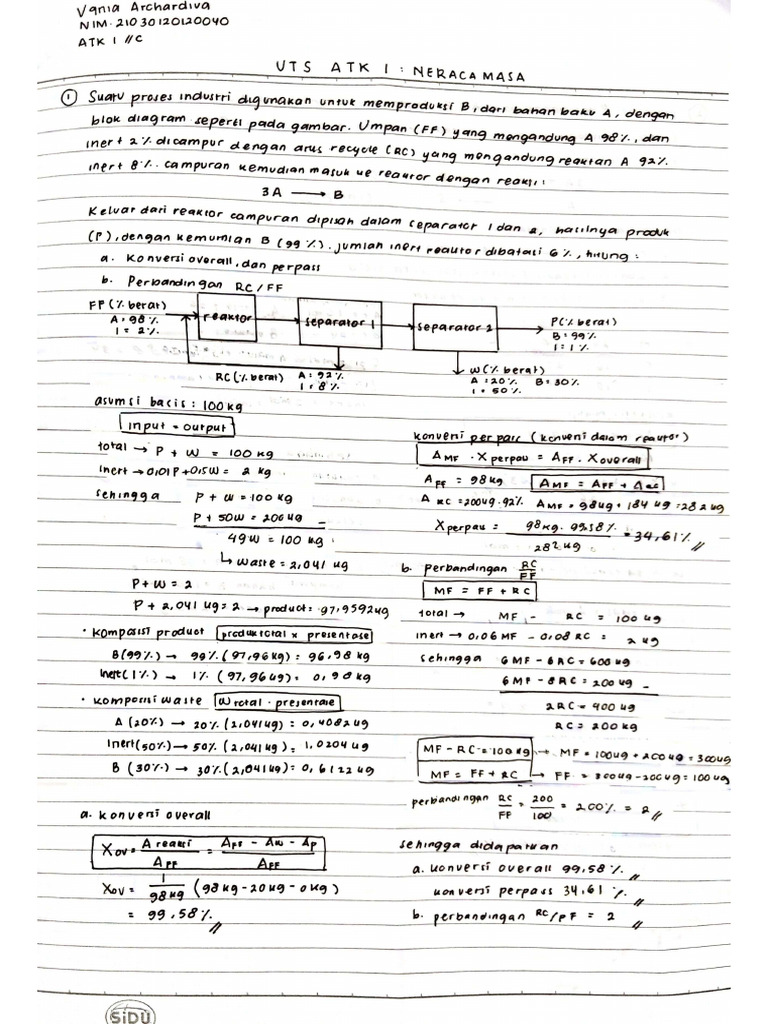 Vania Archardiva
NIM. 21030120120040
ATK 1 // C
UTS ATK 1 : NERACA MASA
① Suatu proses industri digunakan untuk memproduksi B, dari bahan baku A, dengan
blok diagram seperti pada gambar. Umpan (FF) yang mengandung A 98%, dan
inert 2% dicampur dengan arus recycle (RC) yang mengandung reaktan A 92%
inert 8%. campuran kemudian masuk ke reaktor dengan reaksi :
3A → B
Keluar dari reaktor campuran dipisah dalam separator 1 dan 2, hasilnya produk
(P), dengan kemurnian B (99%). jumlah inert reaktor dibatasi 6%, hitung :
a. Konversi overall, dan perpass
b. Perbandingan RC/FF
FF (% berat)
A : 98%
I = 2%
reaktor
separator 1
separator 2
P(% berat)
B = 99%
I = 1%
RC (% berat) A : 92%
I : 8%
W (% berat)
A : 20% B = 30%
I : 50%
asumsi basis : 100 kg
input = output
total → P + W = 100 kg
inert → 0,01P + 0,5W = 2 kg
sehingga P + W = 100 kg
P + 50W = 200 kg –
49W = 100 kg
↳ waste = 2,041 kg
P + W = 2
P + 2,041 kg = 2 → product = 97,9592 kg
• Komposisi product produk total x presentase
B (99%) → 99% (97,96 kg) = 96,98 kg
Inert (1%) → 1% (97,96 kg) = 0,98 kg
• komposisi waste W total . presentase
A (20%) → 20% (2,041 kg) = 0,4082 kg
Inert (50%) → 50% (2,041 kg) = 1,0204 kg
B (30%) → 30% (2,041 kg) = 0,6122 kg
a. konversi overall
Xov = A reaksi / AFF = AFF – AW – AP / AFF
Xov = 1 / 98 kg (98 kg – 20 kg – 0 kg)
= 99,58% //
konversi per pass (konversi dalam reaktor)
AMF . Xperpass = AFF . Xoverall
AFF = 98 kg AMF = AFF + ARC
ARC = 200 kg . 92% AMF = 98 kg + 184 kg = 282 kg
Xperpass = 98 kg . 99,58% / 282 kg = 34,61% //
b. perbandingan RC/FF
MF = FF + RC
total → MF – RC = 100 kg
inert → 0,06 MF – 0,08 RC = 2 kg
sehingga 6MF – 6RC = 600 kg
6MF – 8RC = 200 kg –
2RC = 400 kg
RC = 200 kg
MF – RC = 100 kg → MF = 100 kg + 200 kg = 300 kg
MF = FF + RC → FF = 300 kg – 200 kg = 100 kg
perbandingan RC/FF = 200/100 = 200% = 2 //
sehingga didapatkan
a. konversi overall 99,58% //
konversi perpass 34,61% //
b. perbandingan RC/FF = 2 //
SiDU